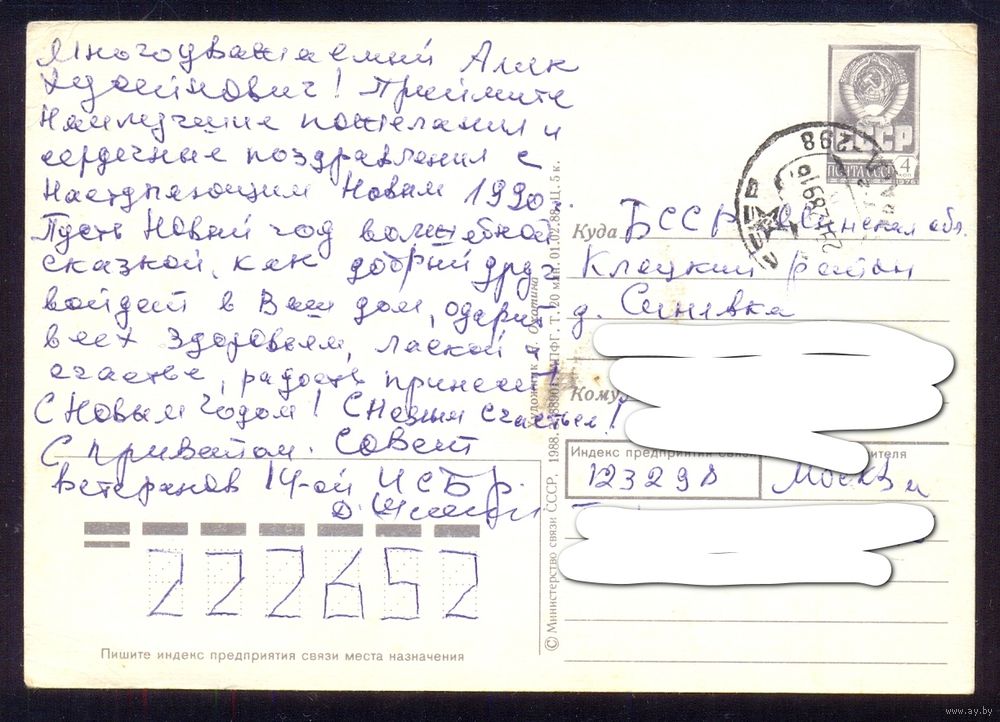 Многоуважаемый Алик
Хусаинович! Примите
Наилучшие пожелания и
сердечные поздравления с
Наступающим Новым 1990г.
Пусть Новый год волшебной
сказкой, как добрый друг
войдет в Ваш дом, одарит
всех здоровьем, лаской и
счастье, радость принесет!
С Новым годом! С Новым счастьем!
С приветом. Совет
Ветеранов 14-ой ИСБр.
222652
Пишите индекс предприятия связи места назначения
© Министерство связи СССР, 1988. МПФГ. Т. 20 млн. 01.02.88. Ц. 5 к.
СССР
ПОЧТА СССР
4
КОП
1976
298
Куда БССР Минская обл.
Клецкий район
д. Синявка
Кому
Индекс предприятия связи
123298
Москва